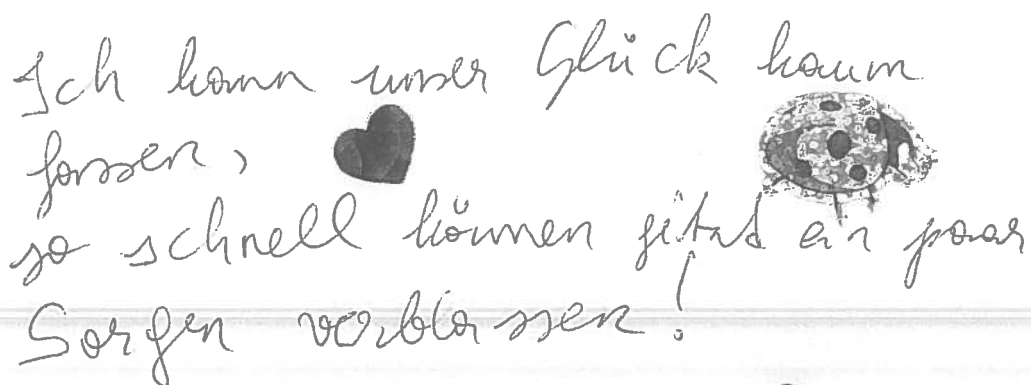 Ich kann unser Glück kaum
fassen,
so schnell können jetzt ein paar
Sorgen verblassen!